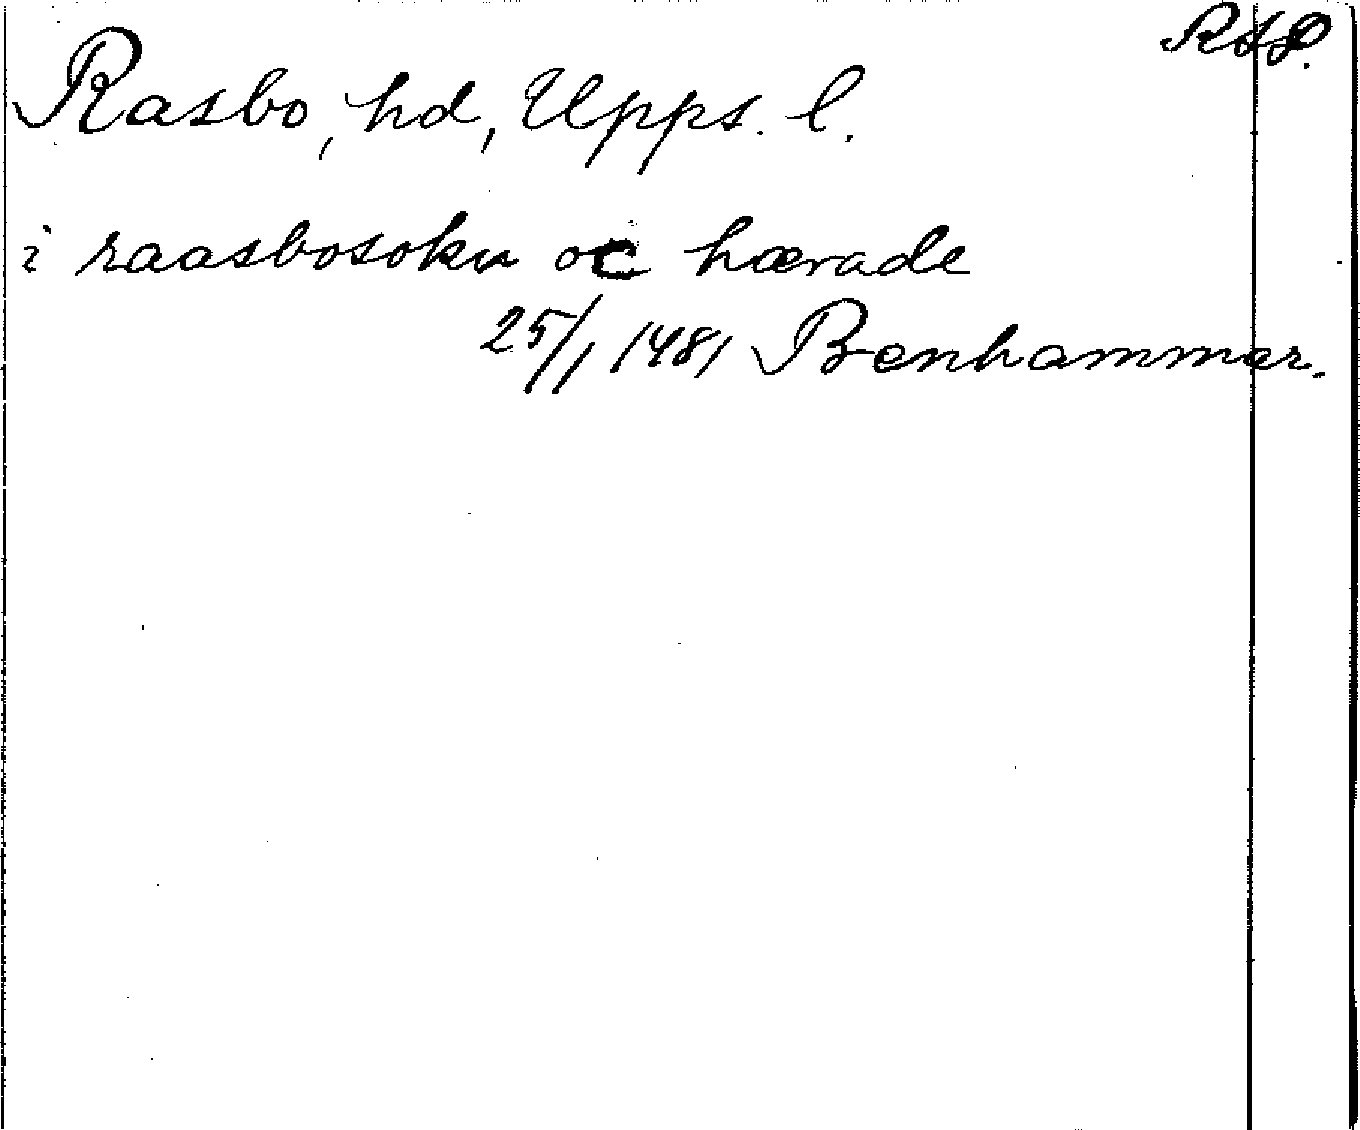 RAP.
Rasbo, hd, Upps. l.
i raasbosokn oc hærade
25/1 1481 Benhammar.